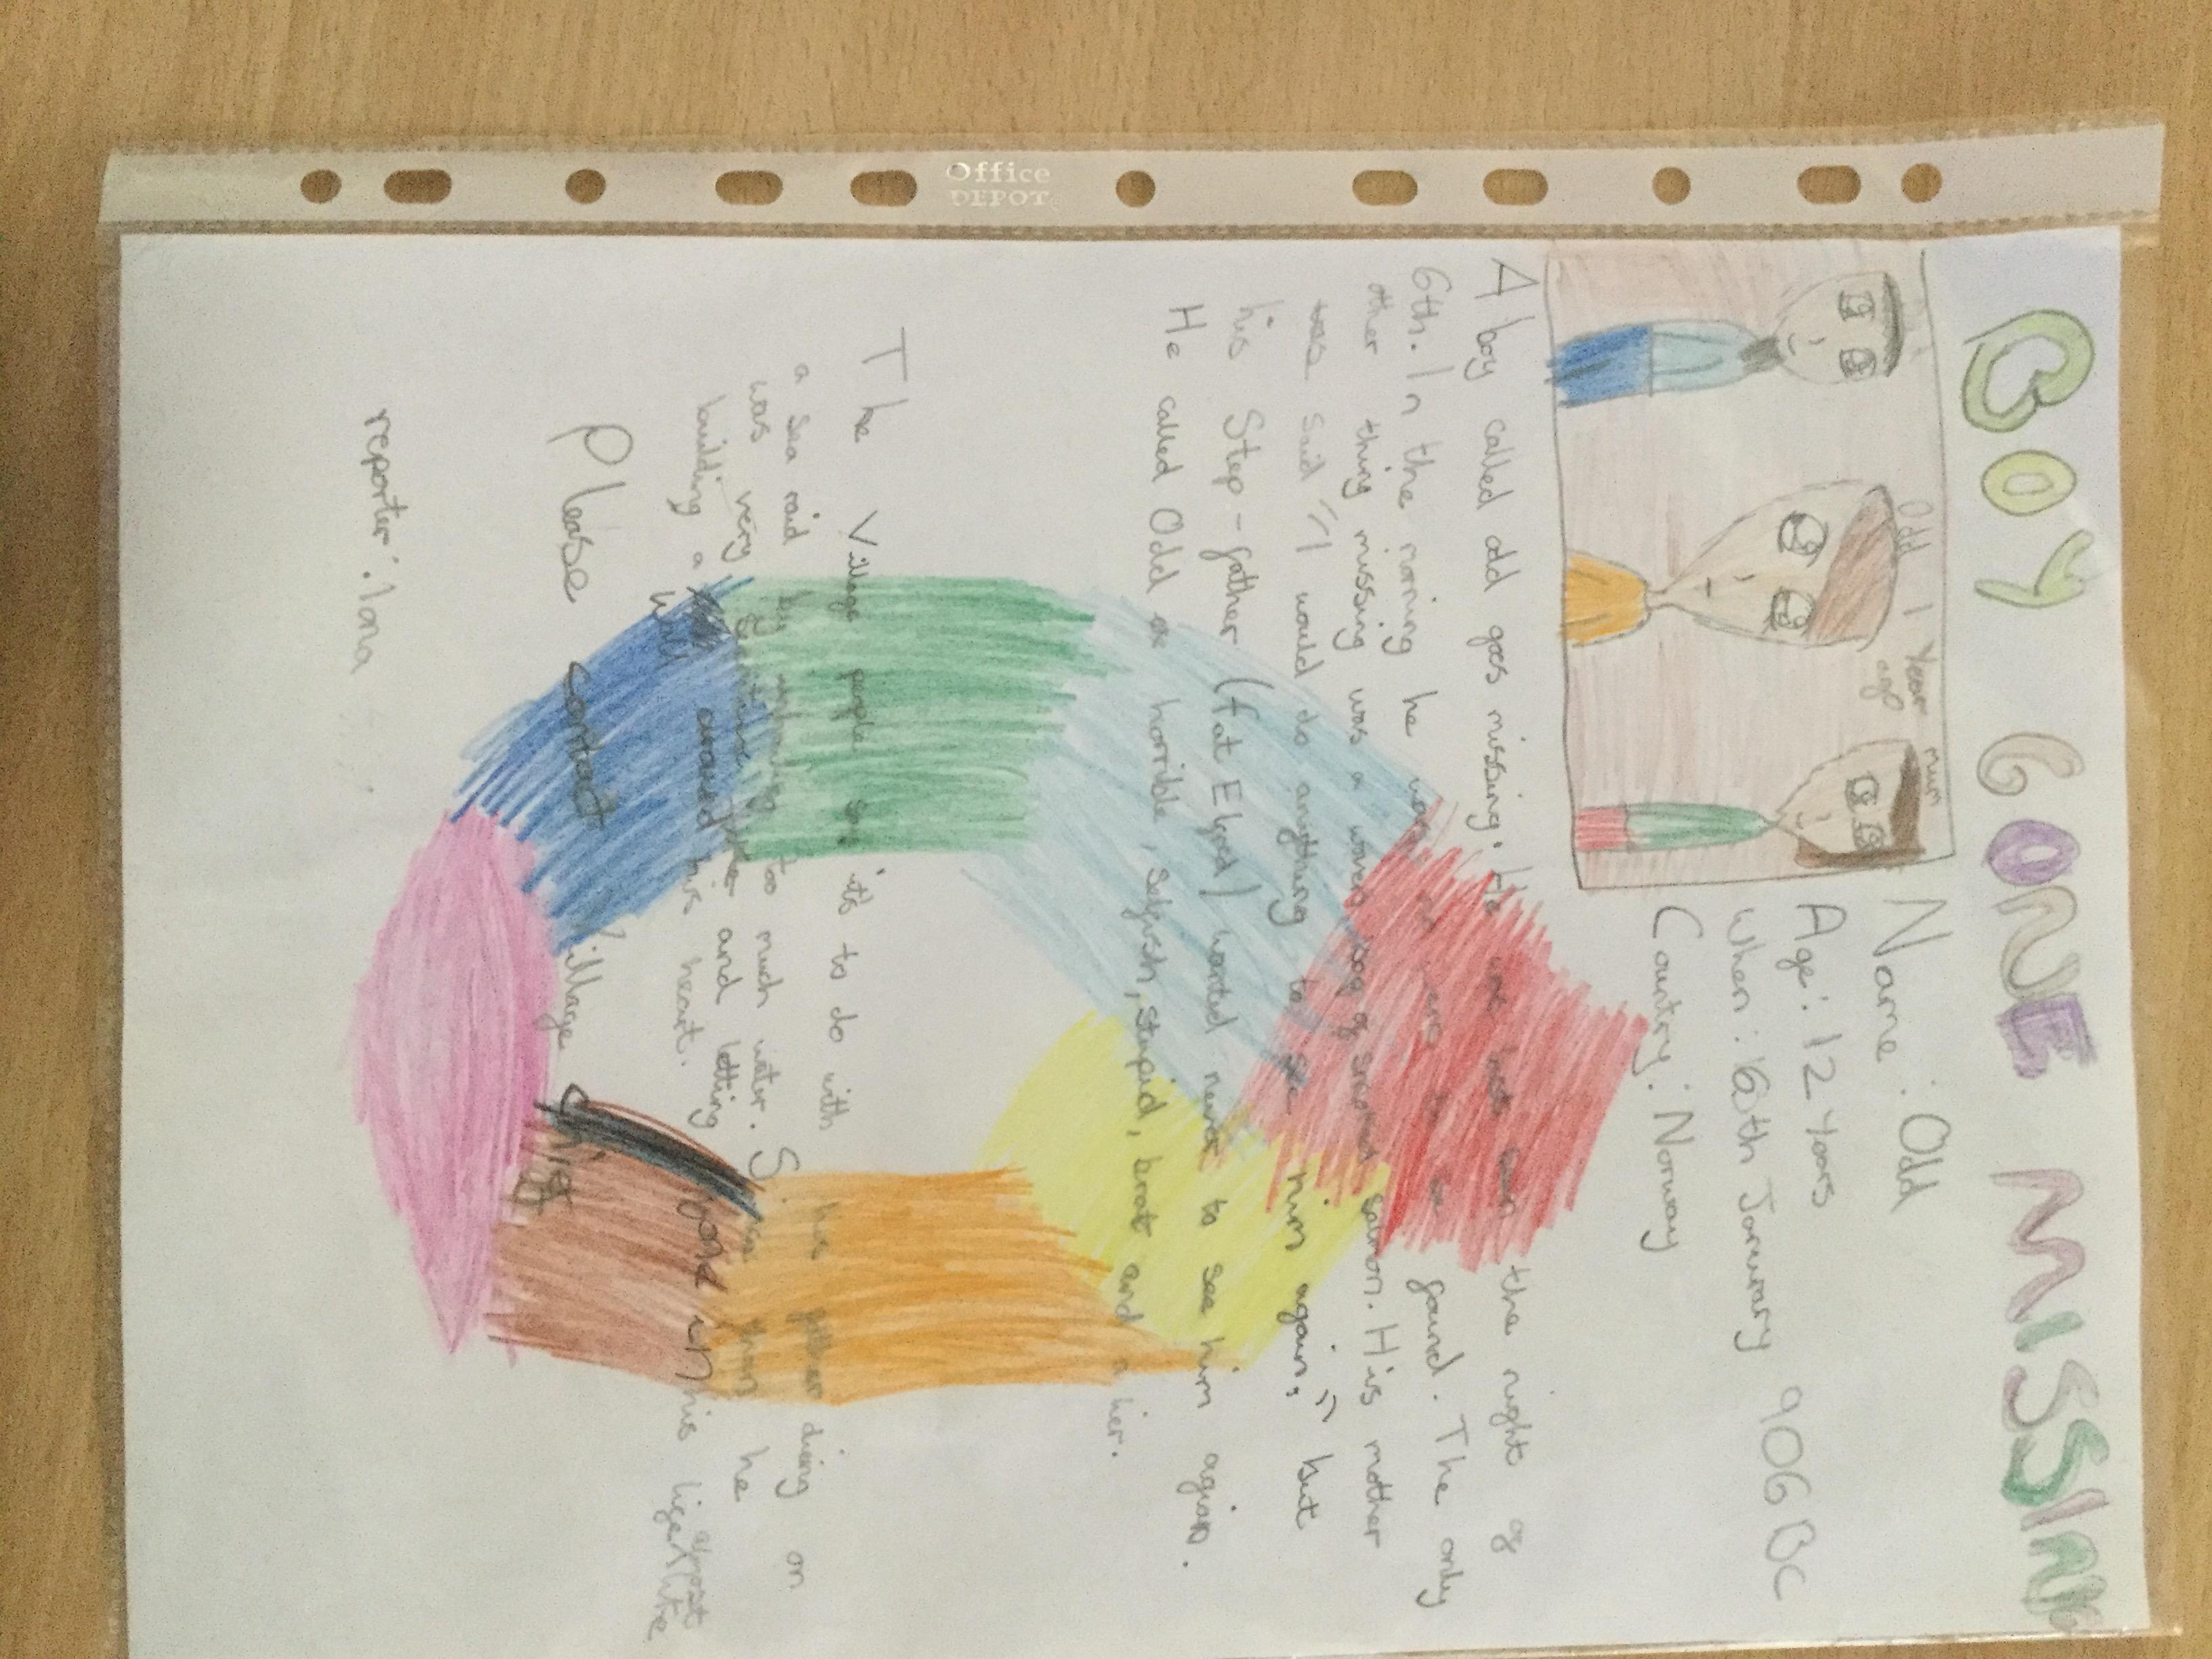 Office
DEPOT
BOY GONE MISSING
Odd 1 year
ago
mum
Name: Odd
Age: 12 Years
When: 6th January 906 BC
Country: Norway
A boy called odd goes missing. He was last seen the night of
6th. In the morning he was to be found. The only
other thing missing was a bag of smoked salmon. His mother
was said "I would do anything to see him again," but
his Step-father (Fat Elfred) wanted never to see him agian.
He called Odd a horrible, selfish, stupid, brat and a lier.
The Village people say it's to do with his father dieing on
a sea raid by too much water. S. than he
was very and letting
building a wall around his heart. in his life
Please contact Village
reporter: Iona